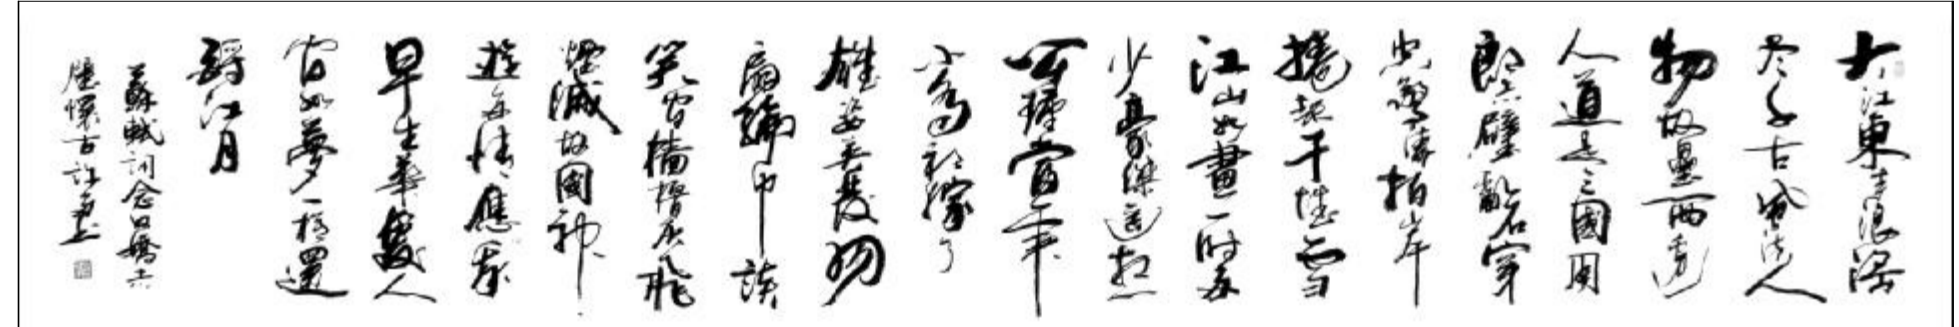 大江東去浪淘
尽千古風流人
物故壘西邊
人道是三國周
郎赤壁亂石穿
空驚濤拍岸
捲起千堆雪
江山如畫一時多
少豪傑遥想
公瑾當年
小喬初嫁了
雄姿英發羽
扇綸巾談
笑間檣櫓灰飛
煙滅故國神
遊多情應笑我
早生華髮人
間如夢一樽還
酹江月
蘇軾詞念奴嬌赤
壁懷古